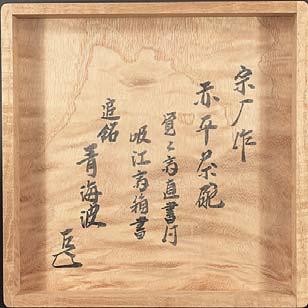 宗入作
赤平茶碗
覚々斎直書付
吸江斎箱書
追銘
青海波